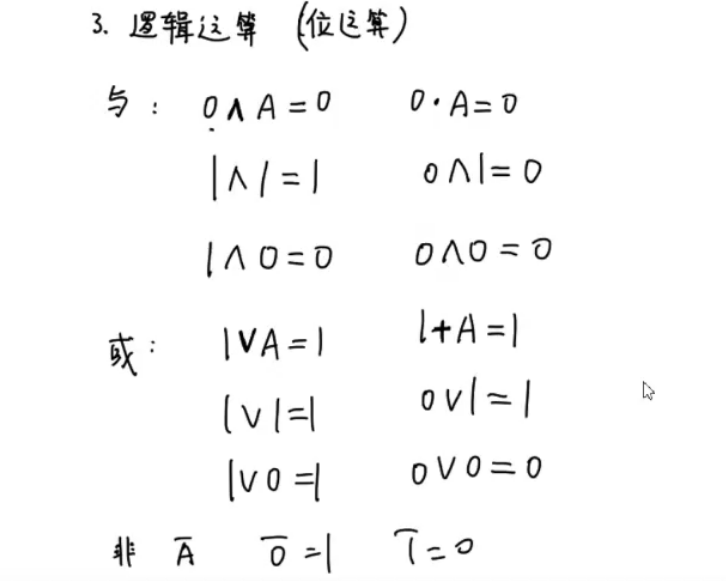 3. 逻辑运算 (位运算)
与: 0∧A=0 0·A=0
1∧1=1 0∧1=0
1∧0=0 0∧0=0
或: 1∨A=1 1+A=1
1∨1=1 0∨1=1
1∨0=1 0∨0=0
非 A̅ 0̅=1 1̅=0